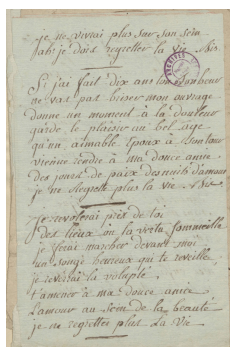 je ne vivrai plus sur son sein
ah! je dois regretter la vie. Bis.
Si j'ai fait dix ans ton bonheur
ne vas pas briser mon ouvrage
donne un moment à la douleur
garde le plaisir un bel age
qu'un aimable Epoux à ton tour
vienne rendre à ma douce amie
des jours de paix des nuits d'amour
je ne regrette plus la vie. Bis
Je revolerai près de toi
des lieux ou la vertu sommeille
je ferai marcher devant moi
un songe heureux qui te reveille
je reverai la volupté
ramener à ma douce amie
L'amour au sein de la beauté
je ne regrette plus la vie